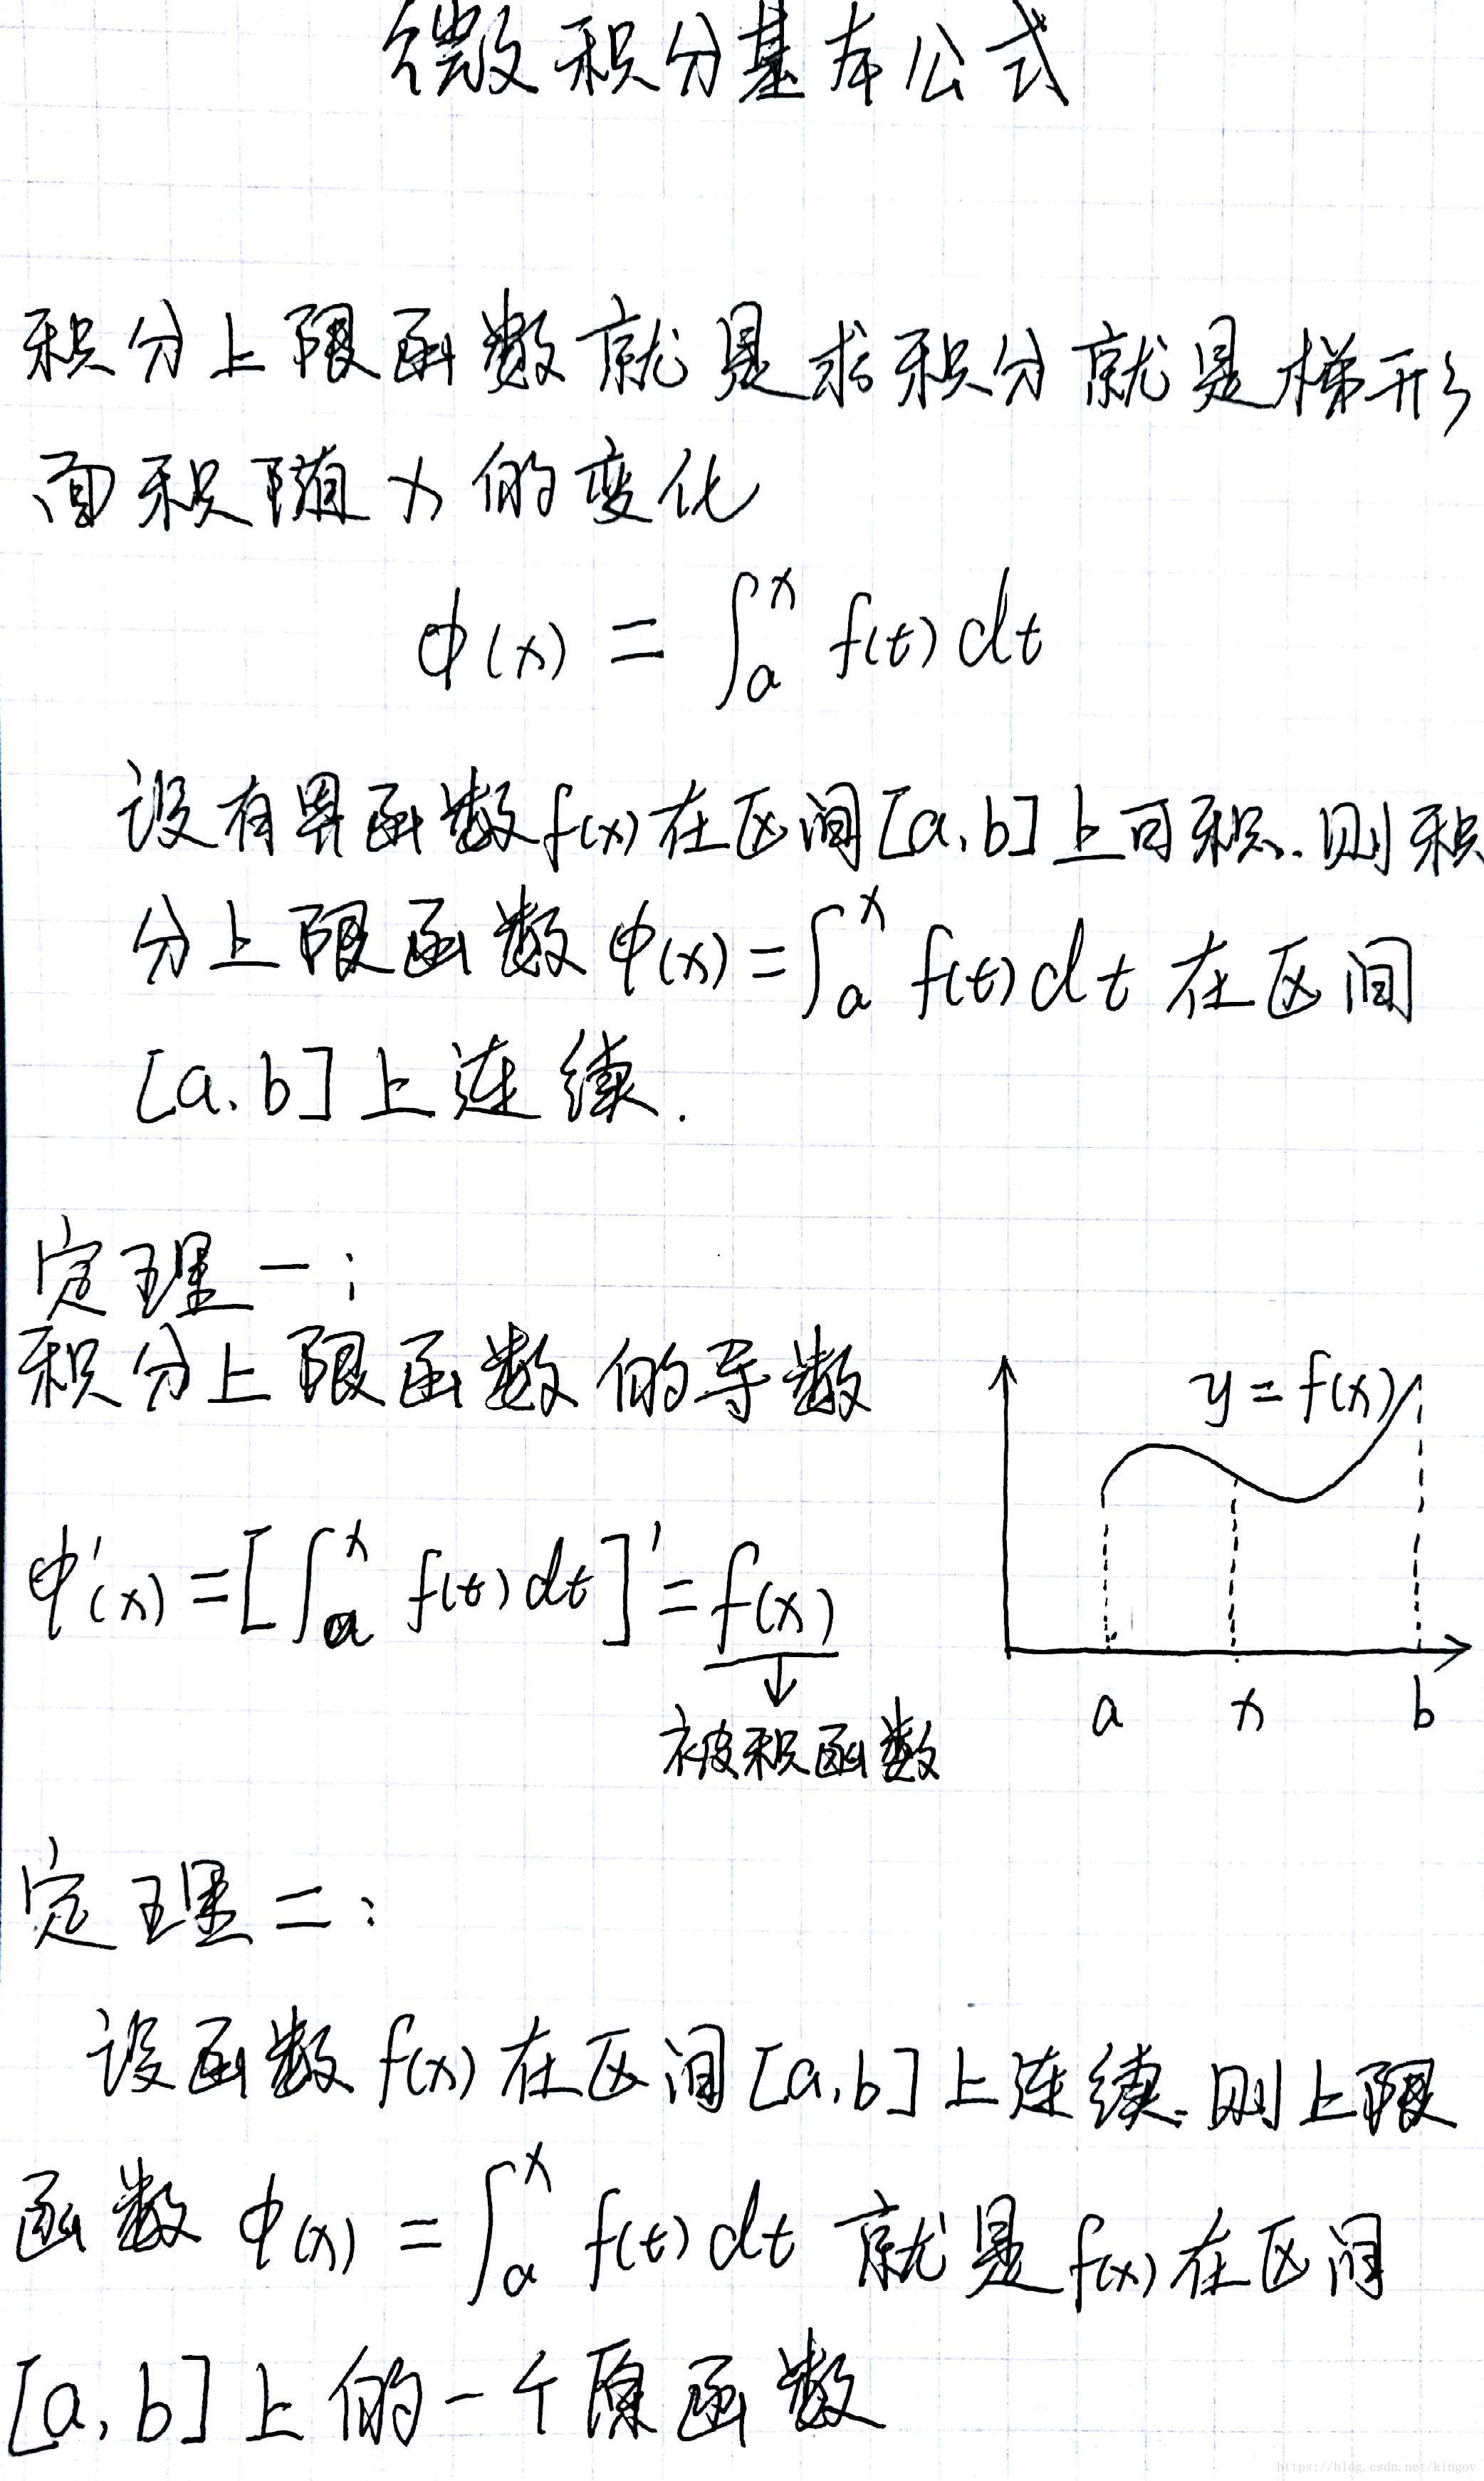 微积分基本公式
积分上限函数就是求积分就是梯形
面积随x的变化
φ(x) = ∫ₐˣ f(t) dt
设有界函数f(x)在区间[a,b]上可积.则积
分上限函数φ(x)=∫ₐˣ f(t)dt在区间
[a,b]上连续.
定理一:
积分上限函数的导数
y=f(x)
φ'(x)=[∫ₐˣ f(t)dt]'=f(x)
↓
a x b
被积函数
定理二:
设函数f(x)在区间[a,b]上连续.则上限
函数φ(x)=∫ₐˣ f(t)dt就是f(x)在区间
[a,b]上的一个原函数
https://blog.csdn.net/kingov